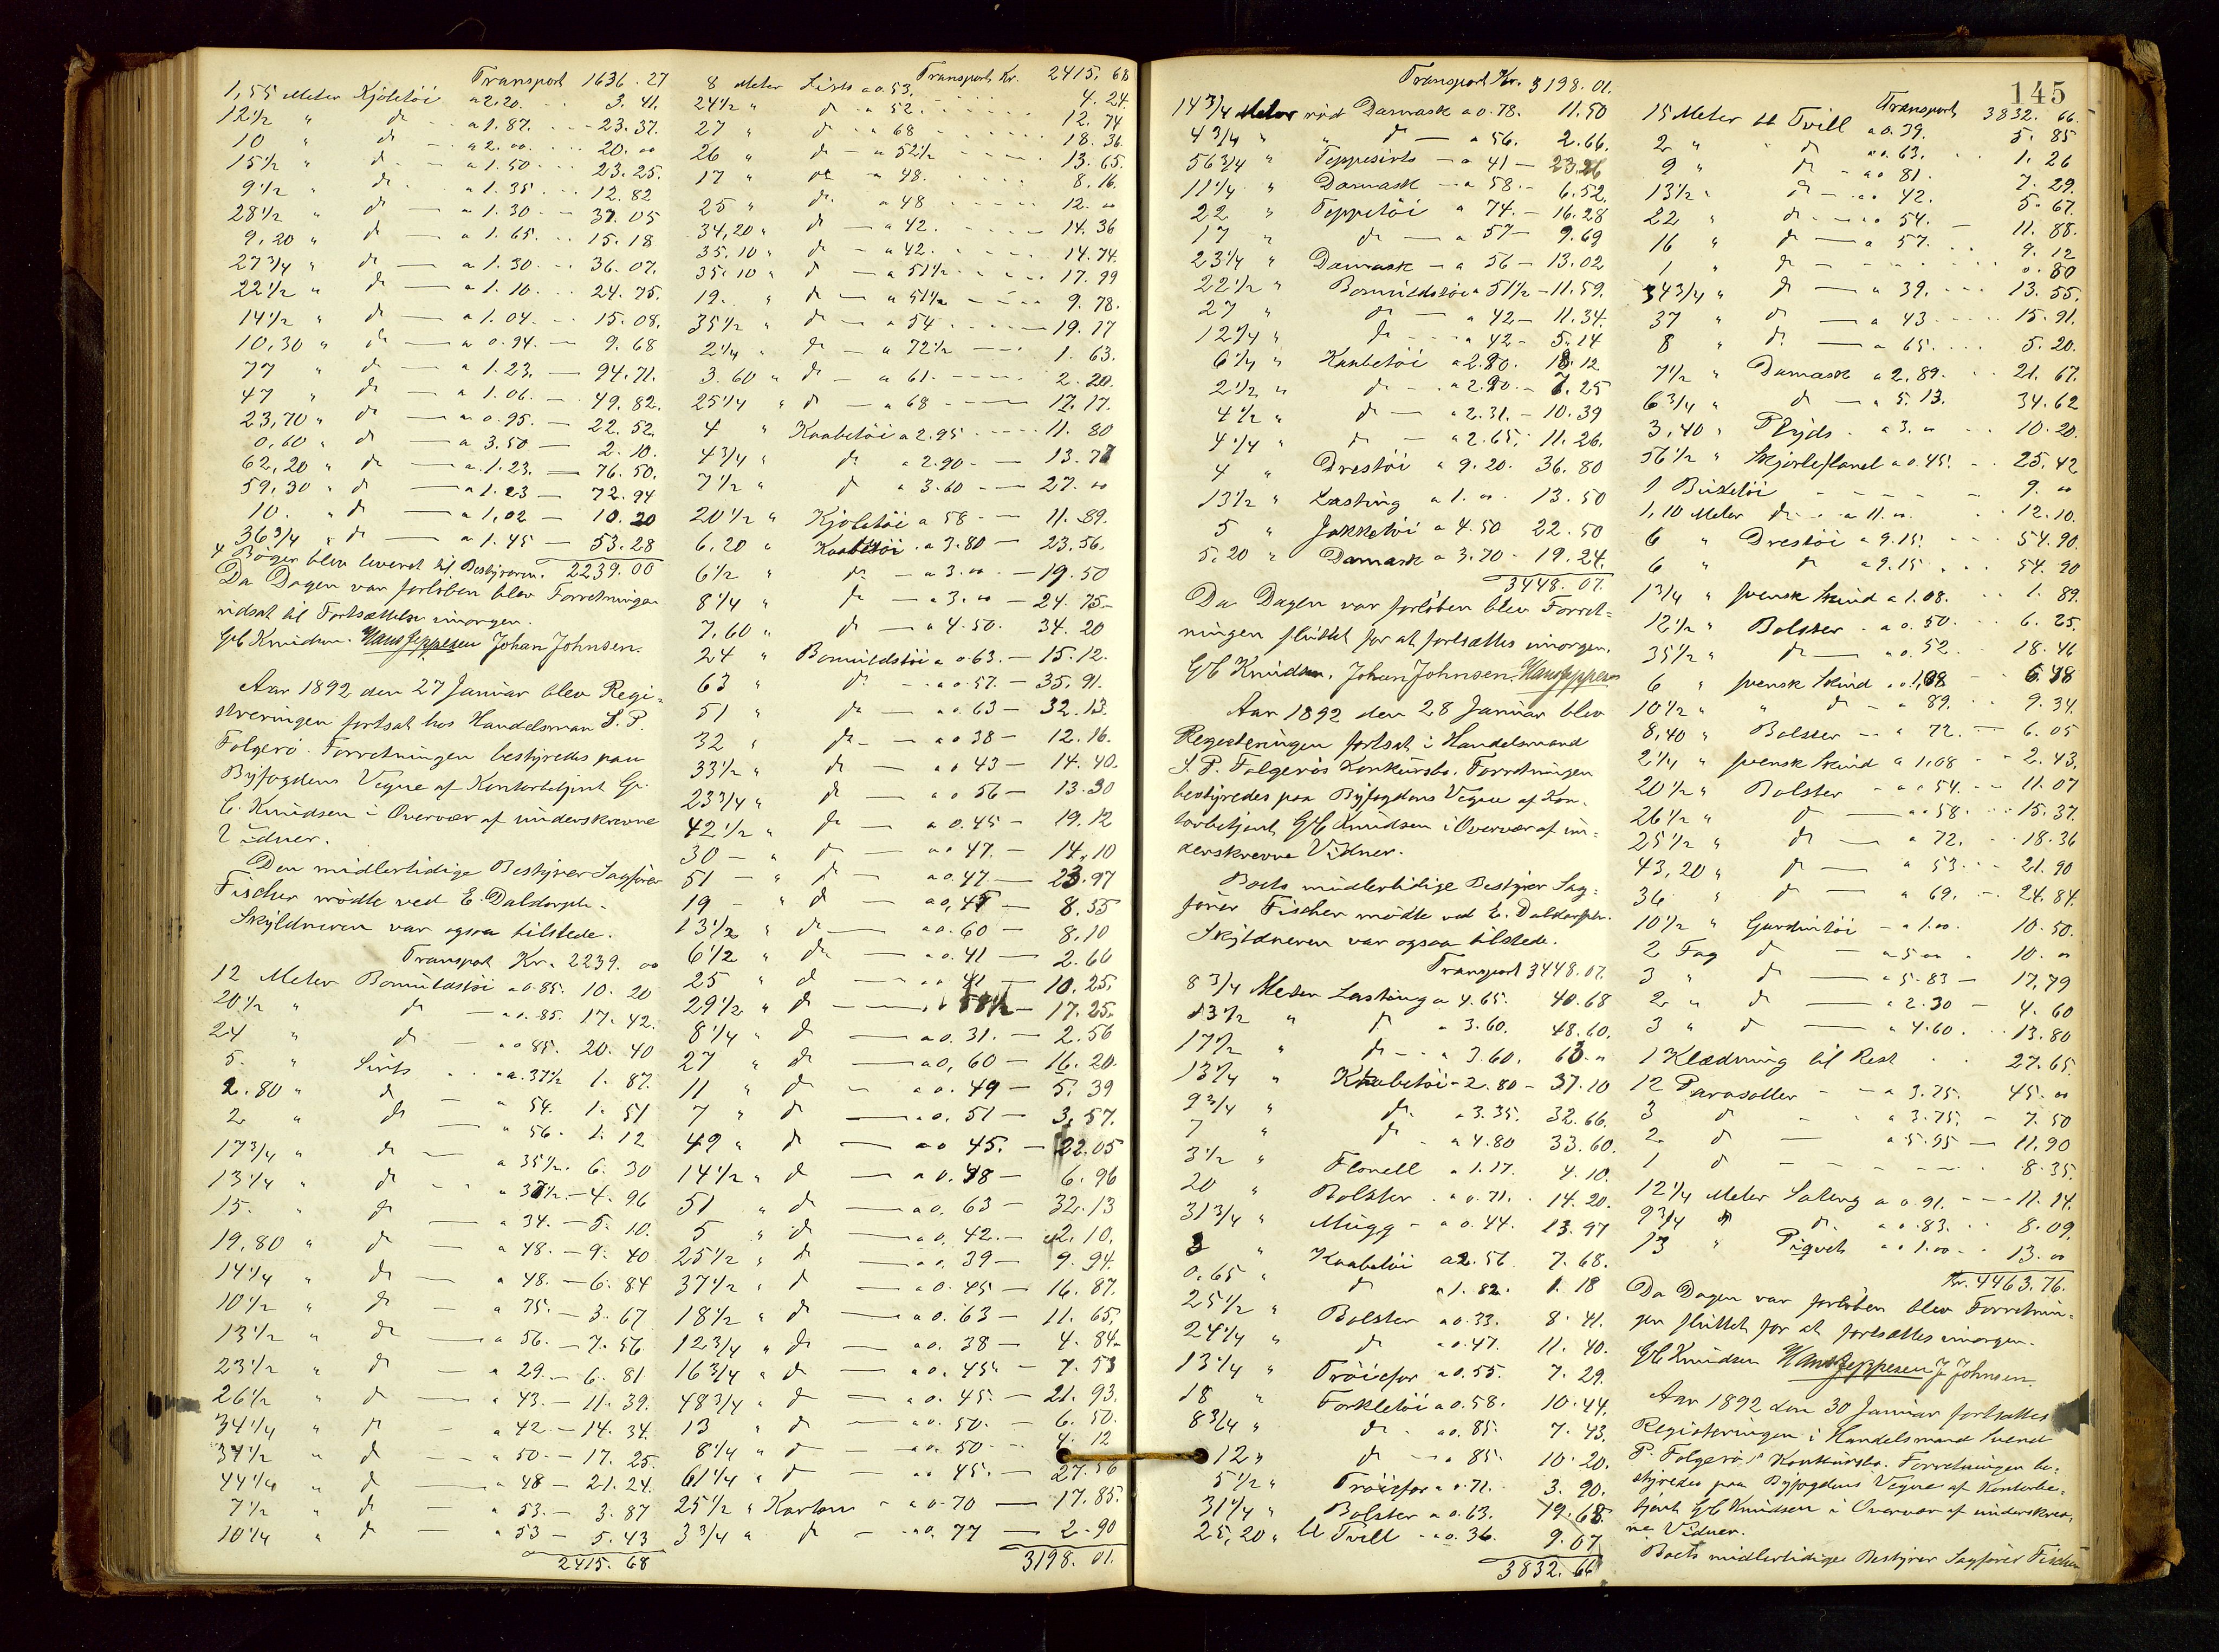 Transport 1636.27
1,55 Meter Kjoletöi a 2.20. 3.41.
12 1/2 " do a 1.87. 23.37.
10 " do a 2.00. 20.00
15 1/2 " do a 1.50 23.25.
9 1/2 " do a 1.35 12.82
28 1/2 " do a 1.30 37.05
9.20 " do a 1.65. 15.18
27 3/4 " do a 1.30 36.07.
22 1/2 " do a 1.10 24.75.
14 1/2 " do a 1.04. 15.08.
10,30 " do a 0.94. 9.68
77 " do a 1.23. 94.71.
47 " do a 1.06. 49.82.
23,70 " do a 0.95. 22.52
0,60 " do a 3.50 2.10.
62,20 " do a 1.23. 76.50.
59,30 " do a 1.23 72.94
10. " do a 1,02 10.20
36 3/4 " do a 1.45 53.28
4 Bøger blev leveret til Bestyreren. 2239.00
Da Dagen var forløben blev Forretningen
udsat til Fortsættelse imorgen.
G C Knudsen. Hans Jeppesen Johan Johnsen.
Aar 1892 den 27 Januar blev Regi-
streringen fortsat hos Handelsman S. P.
Folgerö. Forretningen bestyredes paa
Byfogdens Vegne af Kontorbetjent G.
C. Knudsen i Overvær af underskrevne
Vidner.
Den midlertidige Bestyrer Sagfører
Fischer mödte ved E. Daldorph.
Skyldneren var ogsaa tilstede.
Transport Kr. 2239.00
12 Meter Bomuldstöi a 0.85. 10.20
20 1/2 " do a 0.85. 17.42.
24 " do a 0 85. 20.40
5. " Sirts a 37 1/2 1.87.
2.80 " do a 54. 1.51
2 " do a 56. 1.12
17 3/4 " do a 35 1/2. 6.30
13 1/4 " do a 37 1/2. 4.96
15. " do a 34. 5.10.
19,80 " do a 48. 9.40
14 1/4 " do a 48. 6.84
10 1/2 " do a 35. 3.67
13 1/2 " do a 56. 7.56
23 1/2 " do a 29. 6.81
26 1/2 " do a 43. 11.39.
34 1/4 " do a 42. 14.34.
34 1/2 " do a 50. 17.25.
44 1/4 " do a 48 21.24.
7 1/2 " do a 53. 3.87
10 1/4 " do a 53 5.43
2415.68
Transport Kr. 2415.68
8 Meter Sirts a 0.53. 4.24.
24 1/2 " do a 52. 12.74
27 " do a 68 18.36.
26 " do a 52 1/2 13.65.
17 " do a 48. 8.16.
25 " do a 48 12.00
34,20 " do a 42. 14.36
35.10 " do a 42. 14.74.
35.10 " do a 51 1/2 17.99
19. " do a 51 1/2 9.78.
35 1/2 " do a 54 19.17
2 1/4 " do a 72 1/2 1.63.
3.60 " do a 61. 2.20.
25 1/4 " do a 68 17.17.
4 " Kaabetöi a 2.95 11.80
4 3/4 " do a 2.90 13.77
7 1/2 " do a 3.60 27.00
20 1/2 " Kjoletöi a 58 11.89.
6.20 " Kaabetöi a 3.80 23.56.
6 1/2 " do a 3.00 19.50
8 1/4 " do a 3.00 24.75
7,60 " do a 4.50. 34.20
24 " Bomuldstöi a 0.63. 15.12.
63 " do a 0.57. 35.91.
51 " do a 0.63 32.13.
32 " do a 0 38 12.16.
33 1/2 " do a 0 43 14.40.
23 3/4 " do a 0 56 13.30
42 1/2 " do a 0.45 19.12
30 " do a 0 47. 14.10
51 " do a 0.47 23.97
19 " do a 0,45 8.55
13 1/2 " do a 0.60 8.10
6 1/2 " do a 0.41 2.66
25 " do a 0 41 10.25.
29 1/2 " do a 58 1/2 17.25.
8 1/4 " do a 0.31. 2.56
27 " do a 0,60 16.20.
11 " do a 0.49 5.39
7 " do a 0.51 3.57.
49 " do a 0 45. 22.05
14 1/2 " do a 0.48 6.96
51 " do a 0.63 32.13
5 " do a 0.42. 2.10.
25 1/2 " do a 0.39 9.94.
37 1/2 " do a 0.45 16.87.
18 1/2 " do a 0.63 11.65.
12 3/4 " do a 0.38 4.84
16 3/4 " do a 0.45 7.53
48 3/4 " do a 0.45. 21.93.
13 " do a 0.50. 6.50.
8 1/4 " do a 0.50 4.12
61 1/4 " do a 0 45. 27.56
25 1/2 " Kartun a 0.70 17.85.
3 3/4 " do a 0.77 2.90
3198.01.
145
Transport Kr. 3198.01.
14 3/4 Meter röd Damask a 0.78. 11.50
4 3/4 " " do a 56. 2.66.
56 3/4 " Teppesirts a 41 23.26
11 1/4 " Damask a 58. 6.52.
22 " Teppetöi a 74. 16.28
17 " do a 57 9.69
23 1/4 " Damask a 56 13.02
22 1/2 " Bomuldstöi a 51 1/2 11.59.
27 " do a 42 11.34.
12 1/4 " do a 42 5.14
6 1/4 " Kaabetöi a 2.90. 18.12
2 1/2 " do a 2.90. 7.25
4 1/2 " do a 2.31. 10.39
4 1/4 " do a 2.65. 11.26.
4 " Drestöi a 9.20. 36.80
13 1/2 " Lasting a 1.00. 13.50
5 " Jakketöi a 4.50 22.50
5.20 " Damask a 3.70 19.24.
3448.07.
Da Dagen var forløben blev Forret-
ningen sluttet for at fortsættes imorgen.
G C Knudsen. Johan Johnsen. Hans Jeppesen
Aar 1892 den 28 Januar blev
Registeringen fortsat i Handelsmand
S. P. Folgerös Konkursbo. Forretningen
bestyredes paa Byfogdens Vegne af Kon-
torbetjent G C Knudsen i Overvær af un-
derskrevne Vidner.
Boets midlertidige Bestyrer Sag-
förer Fischer mödte ved E. Daldorph.
Skyldneren var ogsaa tilstede.
Transport 3448.07.
8 3/4 Meter Lasting a 4.65. 40.68
13 1/2 " do a 3.60. 48.60.
17 1/2 " do a 3.60. 63.00
13 1/4 " Kaabetöi 2.80 37.10
9 3/4 " do a 3.35. 32.66.
7 " do a 4.80 33.60.
3 1/2 " Flonell a 1.17. 4.10.
20 " Bolster a 0.71. 14.20.
31 3/4 " Mugg a 0.44. 13.97
3 " Kaabetöi a 2.56 7.68.
0.65 " do a 1.82. 1.18
25 1/2 " Bolster a 0.33. 8.41.
24 1/4 " do a 0.47. 11.40.
13 1/4 " Tröiefor a 0.55. 7.29.
18 " Forkletöi a 0.58. 10.44.
8 3/4 " do a 0.85 7.43.
12 " do a 85. 10.20.
5 1/2 " Tröiefor a 0.71. 3.90.
31 1/4 " Bolster a 0.63. 19.68.
25,20 " bl Tvill a 0.36. 9.07
3832.66
Transport 3832.66.
15 Meter bl Tvill a 0.39. 5.85
2 " do a 0.63. 1.26
9 " do a 0 81. 7.29.
13 1/2 " do a 0 42. 5.67.
22 " do a 0 54. 11.88.
16 " do a 57. 9.12
1 " do 0.80
34 3/4 " do a 39. 13.55.
37 " do a 43 15.91.
8 " do a 65. 5.20.
7 1/2 " Damask a 2.89. 21.67.
6 3/4 " do a 5.13. 34.62
3,40 " Plyds a 3.00 10.20.
56 1/2 " Skjorteflanel a 0.45. 25.42
1 Buxetöi 9.00
1,10 Meter do a 11.00. 12.10.
6 " Drestöi a 9.15. 54.90.
6 " do a 9.15 54.90
1 3/4 " svensk Skind a 1.08. 1.89.
12 1/2 " Bolster a 0.50. 6.25.
35 1/2 " do a 0.52 18.46
6 " svensk Skind a 1,08 6.48
10 1/2 " " do a 89. 9.34.
8,40 " Bolster a 72. 6.05
2 1/4 " svensk Skind a 1,08 2.43.
20 1/2 " Bolster a 0 54. 11.07
26 1/2 " do a 0 58. 15.37.
25 1/2 " do a 72. 18.36
43,20 " do a 53 21.90
36 " do a 69. 24.84.
10 1/2 " Gardintöi a 1.00. 10.50.
2 Fag do a 5 00 10.00
3 " do a 5.83 17,79
2 " do a 2.30 4.60
3 " do a 4.60. 13.80
1 Klædning til Rest 27.65.
12 Parasoller a 3.75. 45.00
3 do a 3.75. 7.50
2 do a 5.95 11,90
1 do 8.35.
12 1/4 Meter Sateng a 0.91. 11.14.
9 3/4 " do a 0.83. 8.09.
13 " Piqvet a 1.00 13.00
Kr. 4463.76.
Da Dagen var forløben blev Forretnin-
gen sluttet for at fortsættes imorgen.
G C Knudsen Hans Jeppesen J Johnsen.
Aar 1892 den 30 Januar fortsattes
Registeringen i Handelsmand Svend
P. Folgerö's Konkursbo. Forretningen be-
styredes paa Byfogdens Vegne af Kontorbe-
tjent G C Knudsen i Overvær af underskrev-
ne Vidner.
Boets midlertidige Bestyrer Sagförer Fischer